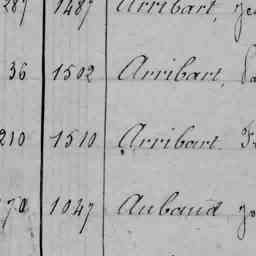 287 1487 Arribart,
36 1502 Arribart,
210 1510 Arribart
70 1047 Aubaud